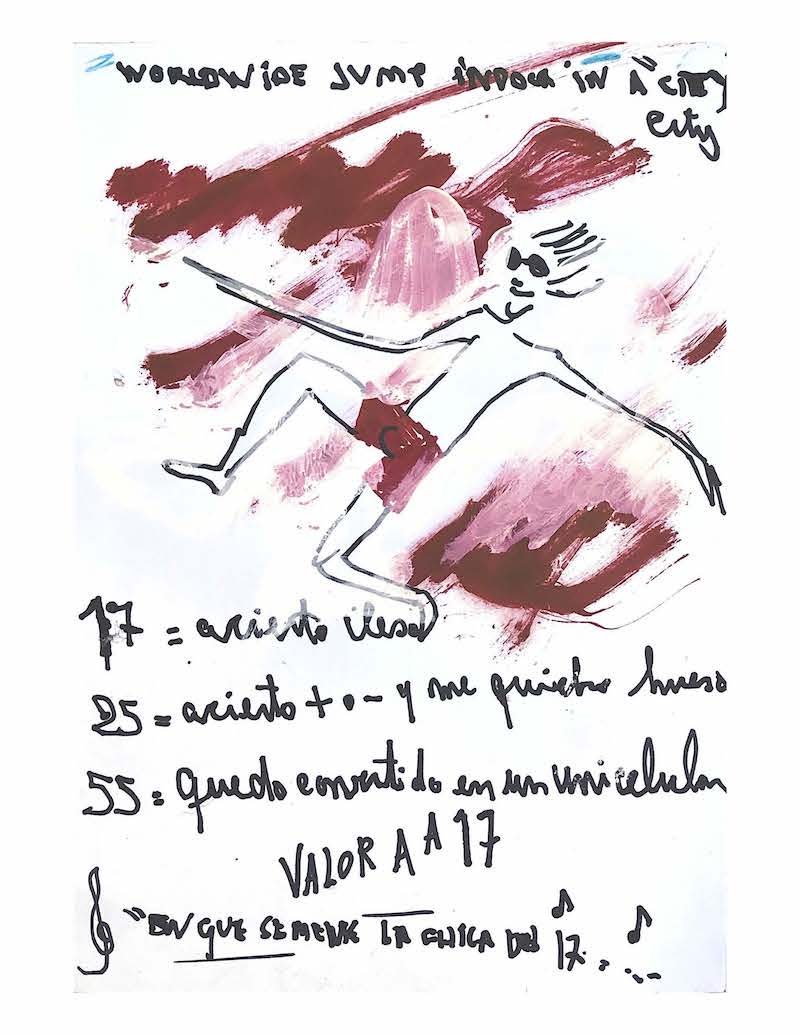 WORLDWIDE JUMP INDOOR IN A CITY
City
17 = acierto ileso
25 = acierto + o - y me quiebro hueso
55 = quedo convertido en un unicelular
VALOR A A 17
"EN QUE SE METE LA CHICA DEL 17...